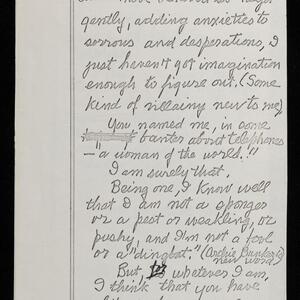 gently, adding anxieties to
sorrows and desperations, I
just haven't got imagination
enough to figure out. (Some
kind of villainy new to me)
You named me, in some
banter about telephones
— "a woman of the world!"
I am surely that.
Being one, I know well
that I am not a sponger
or a pest or weakling, or
pushy, and I'm not a fool
or a "dingbat." (Archie Bunker's
new word)
But, whatever I am,
I think that you have